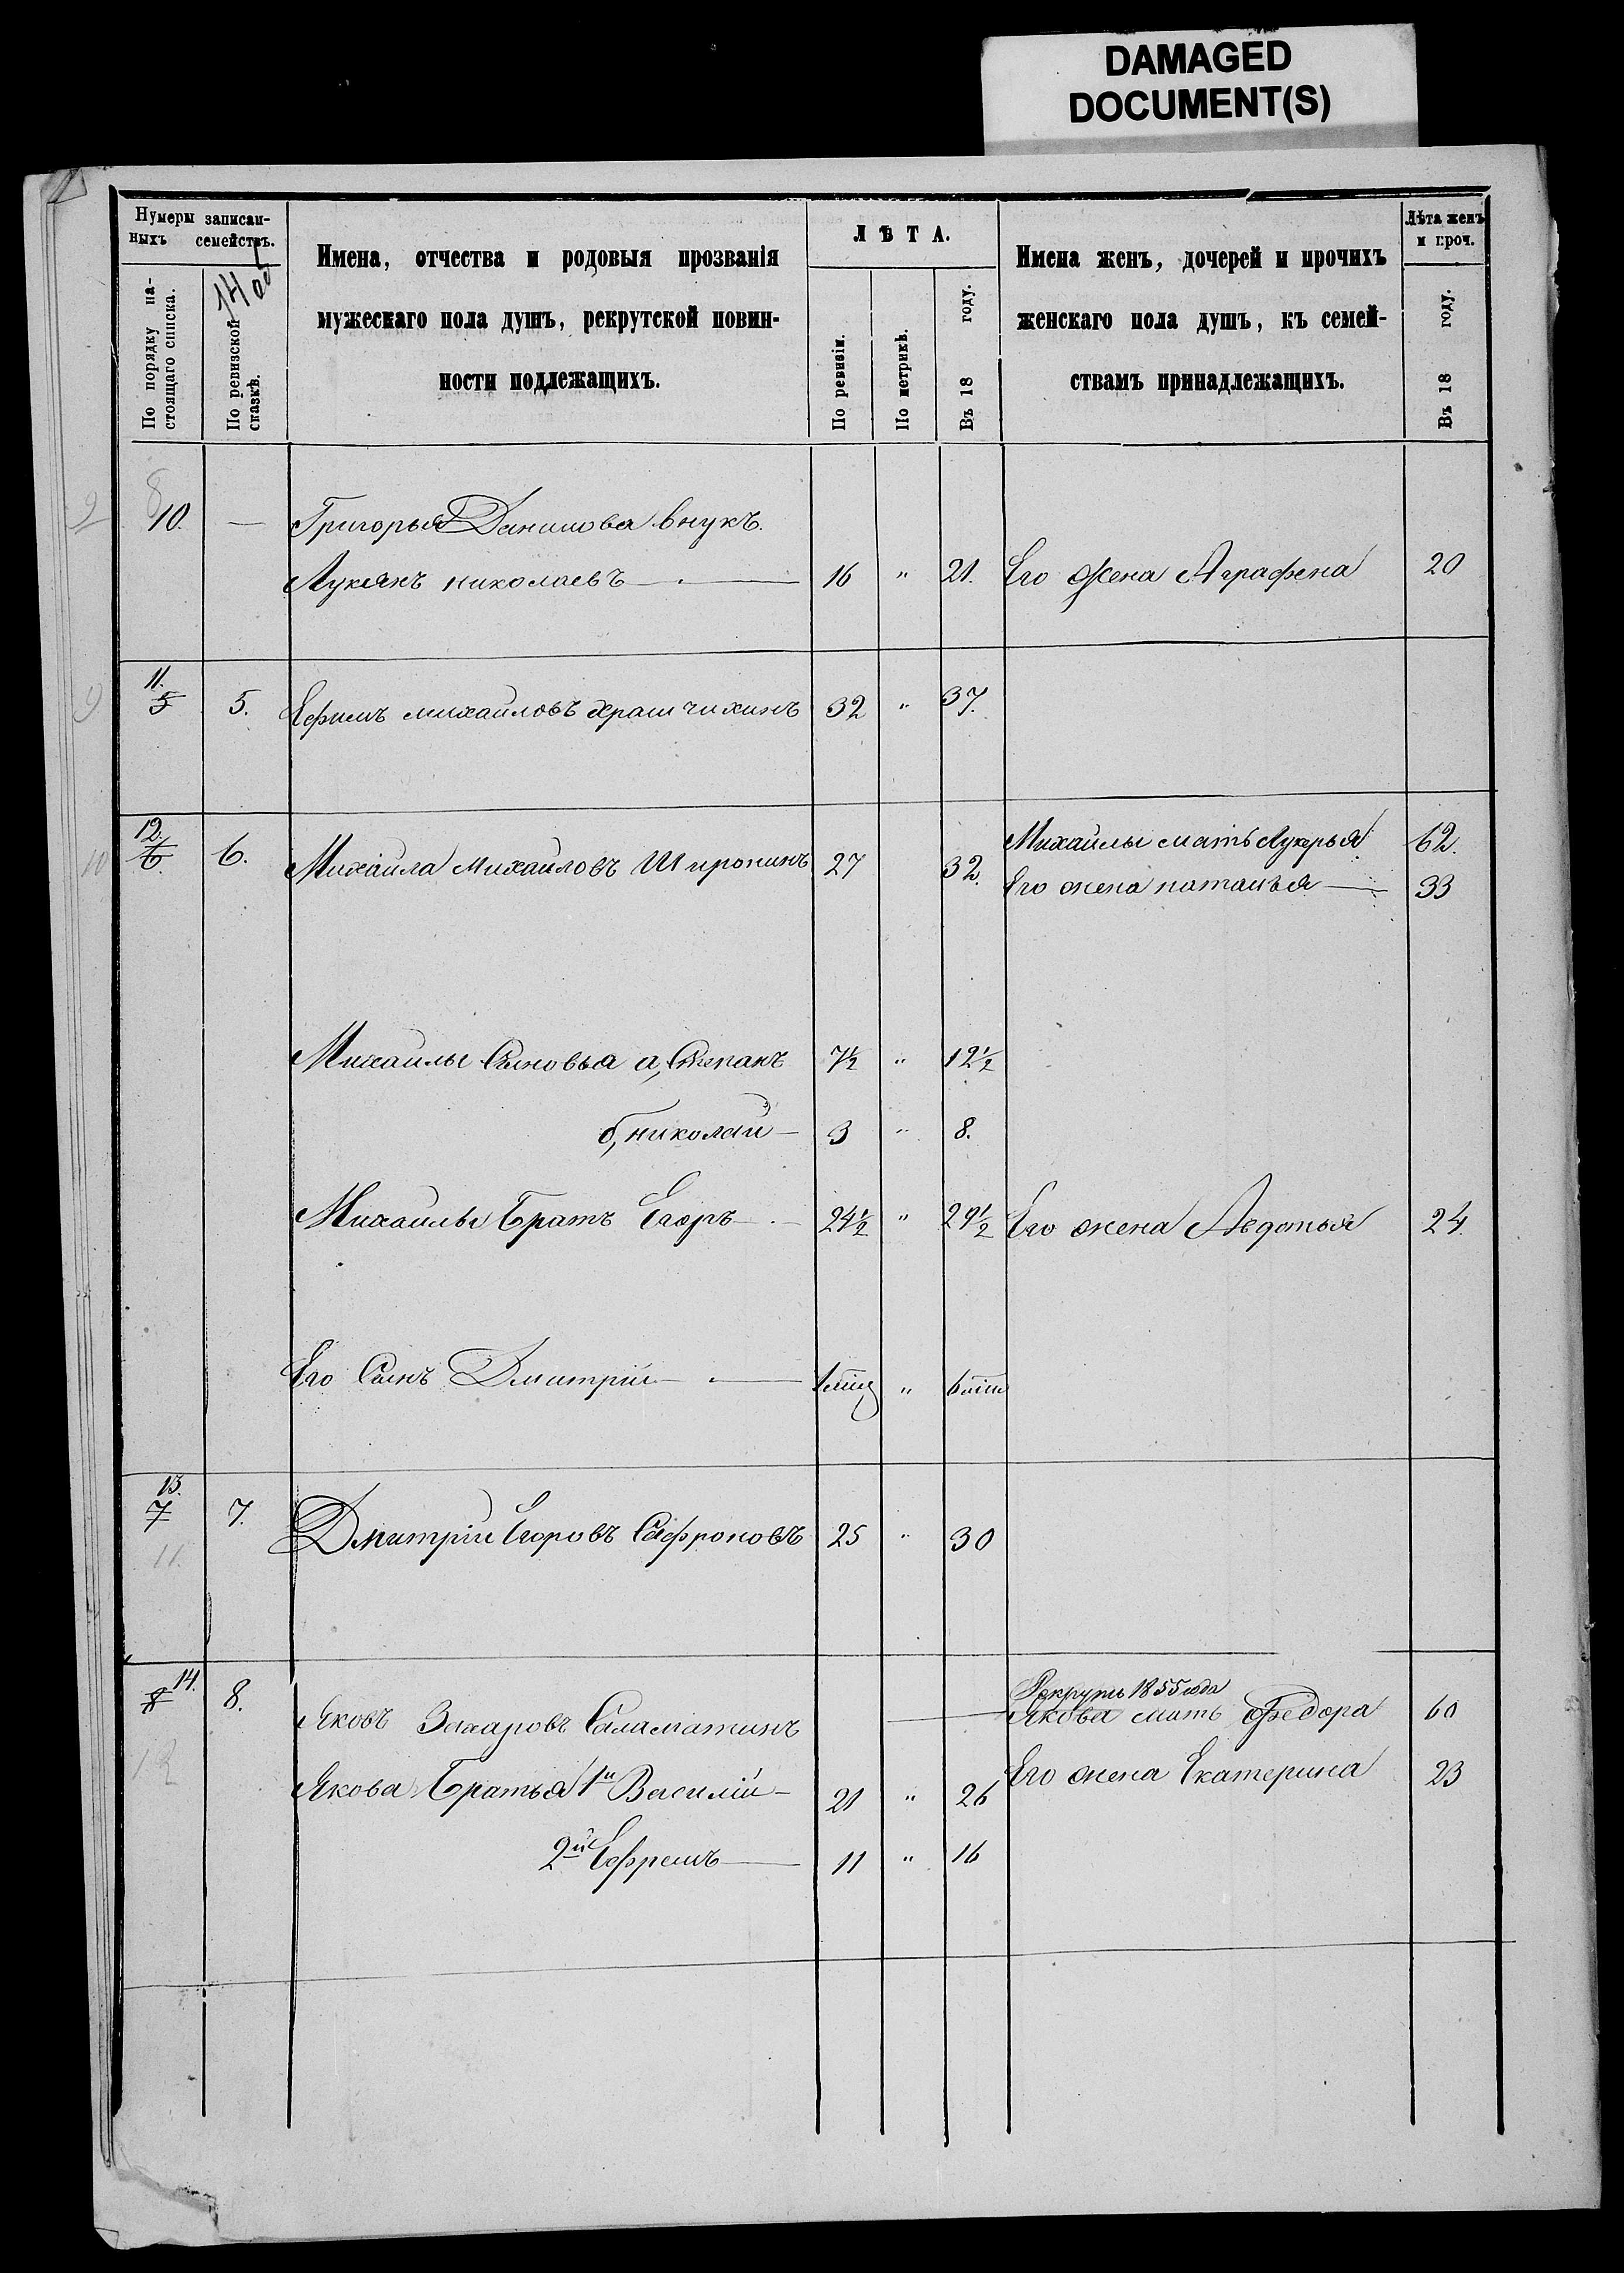 DAMAGED
DOCUMENT(S)
Нумеры записан-
ныхъ семействъ.
По порядку на-
стоящаго списка.
По ревизской
сказкѣ.
Имена, отчества и родовыя прозванія
мужескаго пола душъ, рекрутской повин-
ности подлежащихъ.
ЛѢТА.
По ревизіи.
По метрикѣ.
Въ 18 году.
Имена женъ, дочерей и прочихъ
женскаго пола душъ, къ семей-
ствамъ принадлежащихъ.
Лѣта женъ
и проч.
Въ 18 году.
9 8
10. — Григорья Данилова внукъ.
Лукіянъ николаевъ — 16 " 21. Его Жена Аграфена 20
11.
9 5 5. Ефимъ михайловъ Храмчихинъ 32 " 37.
12.
10 6. 6. Михайла Михайловъ Широнинъ 27 32.
Михайлы мать Лукерья 62.
Его жена наталья — 33
Михайлы Сыновья а, Степанъ 7½ " 12½
б, николай — 3 " 8.
Михайлы Братъ Егоръ — 24½ " 29½ Его жена Авдотья 24.
Его Сынъ Дмитрій — "
13.
7 7. Дмитрій Егоровъ Сафроновъ 25 " 30
11.
14.
8 8. Яковъ Захаровъ Саламатинъ — Рекрутъ 1855 года
Якова мать Федора 60
12
Якова Братья 1й Василій — 21 " 26 Его жена Екатерина 23
2й Ефремъ — 11 " 16